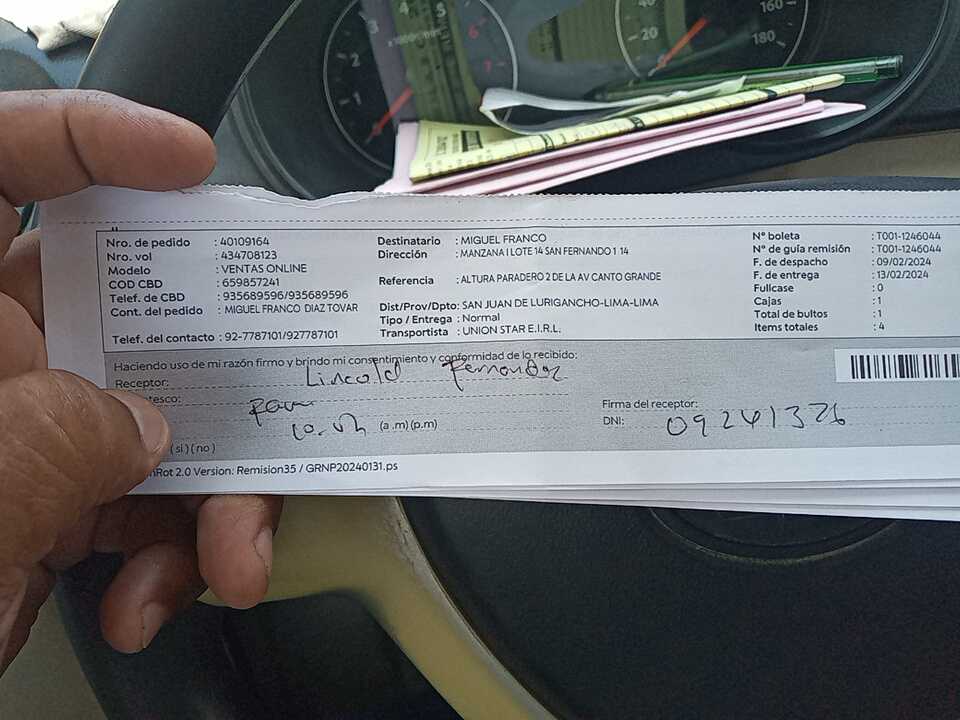 Nro. de pedido : 40109164
Nro. vol : 434708123
Modelo : VENTAS ONLINE
COD CBD : 659857241
Telef. de CBD : 935689596/935689596
Cont. del pedido : MIGUEL FRANCO DIAZ TOVAR
Telef. del contacto : 92-7787101/927787101
Destinatario : MIGUEL FRANCO
Dirección : MANZANA I LOTE 14 SAN FERNANDO 1 14
Referencia : ALTURA PARADERO 2 DE LA AV CANTO GRANDE
Dist/Prov/Dpto: SAN JUAN DE LURIGANCHO-LIMA-LIMA
Tipo / Entrega : Normal
Transportista : UNION STAR E.I.R.L.
N° boleta : T001-1246044
N° de guía remisión : T001-1246044
F. de despacho : 09/02/2024
F. de entrega : 13/02/2024
Fullcase : 0
Cajas : 1
Total de bultos : 1
Items totales : 4
Haciendo uso de mi razón firmo y brindo mi consentimiento y conformidad de lo recibido:
Receptor: Lincold Fernandez
tesco:
(a .m) (p.m)
Firma del receptor:
DNI: 09241326
( si ) ( no )
Rot 2.0 Version: Remision35 / GRNP20240131.ps
1
2
3
4
5
6
7
x1000
20
40
160
180